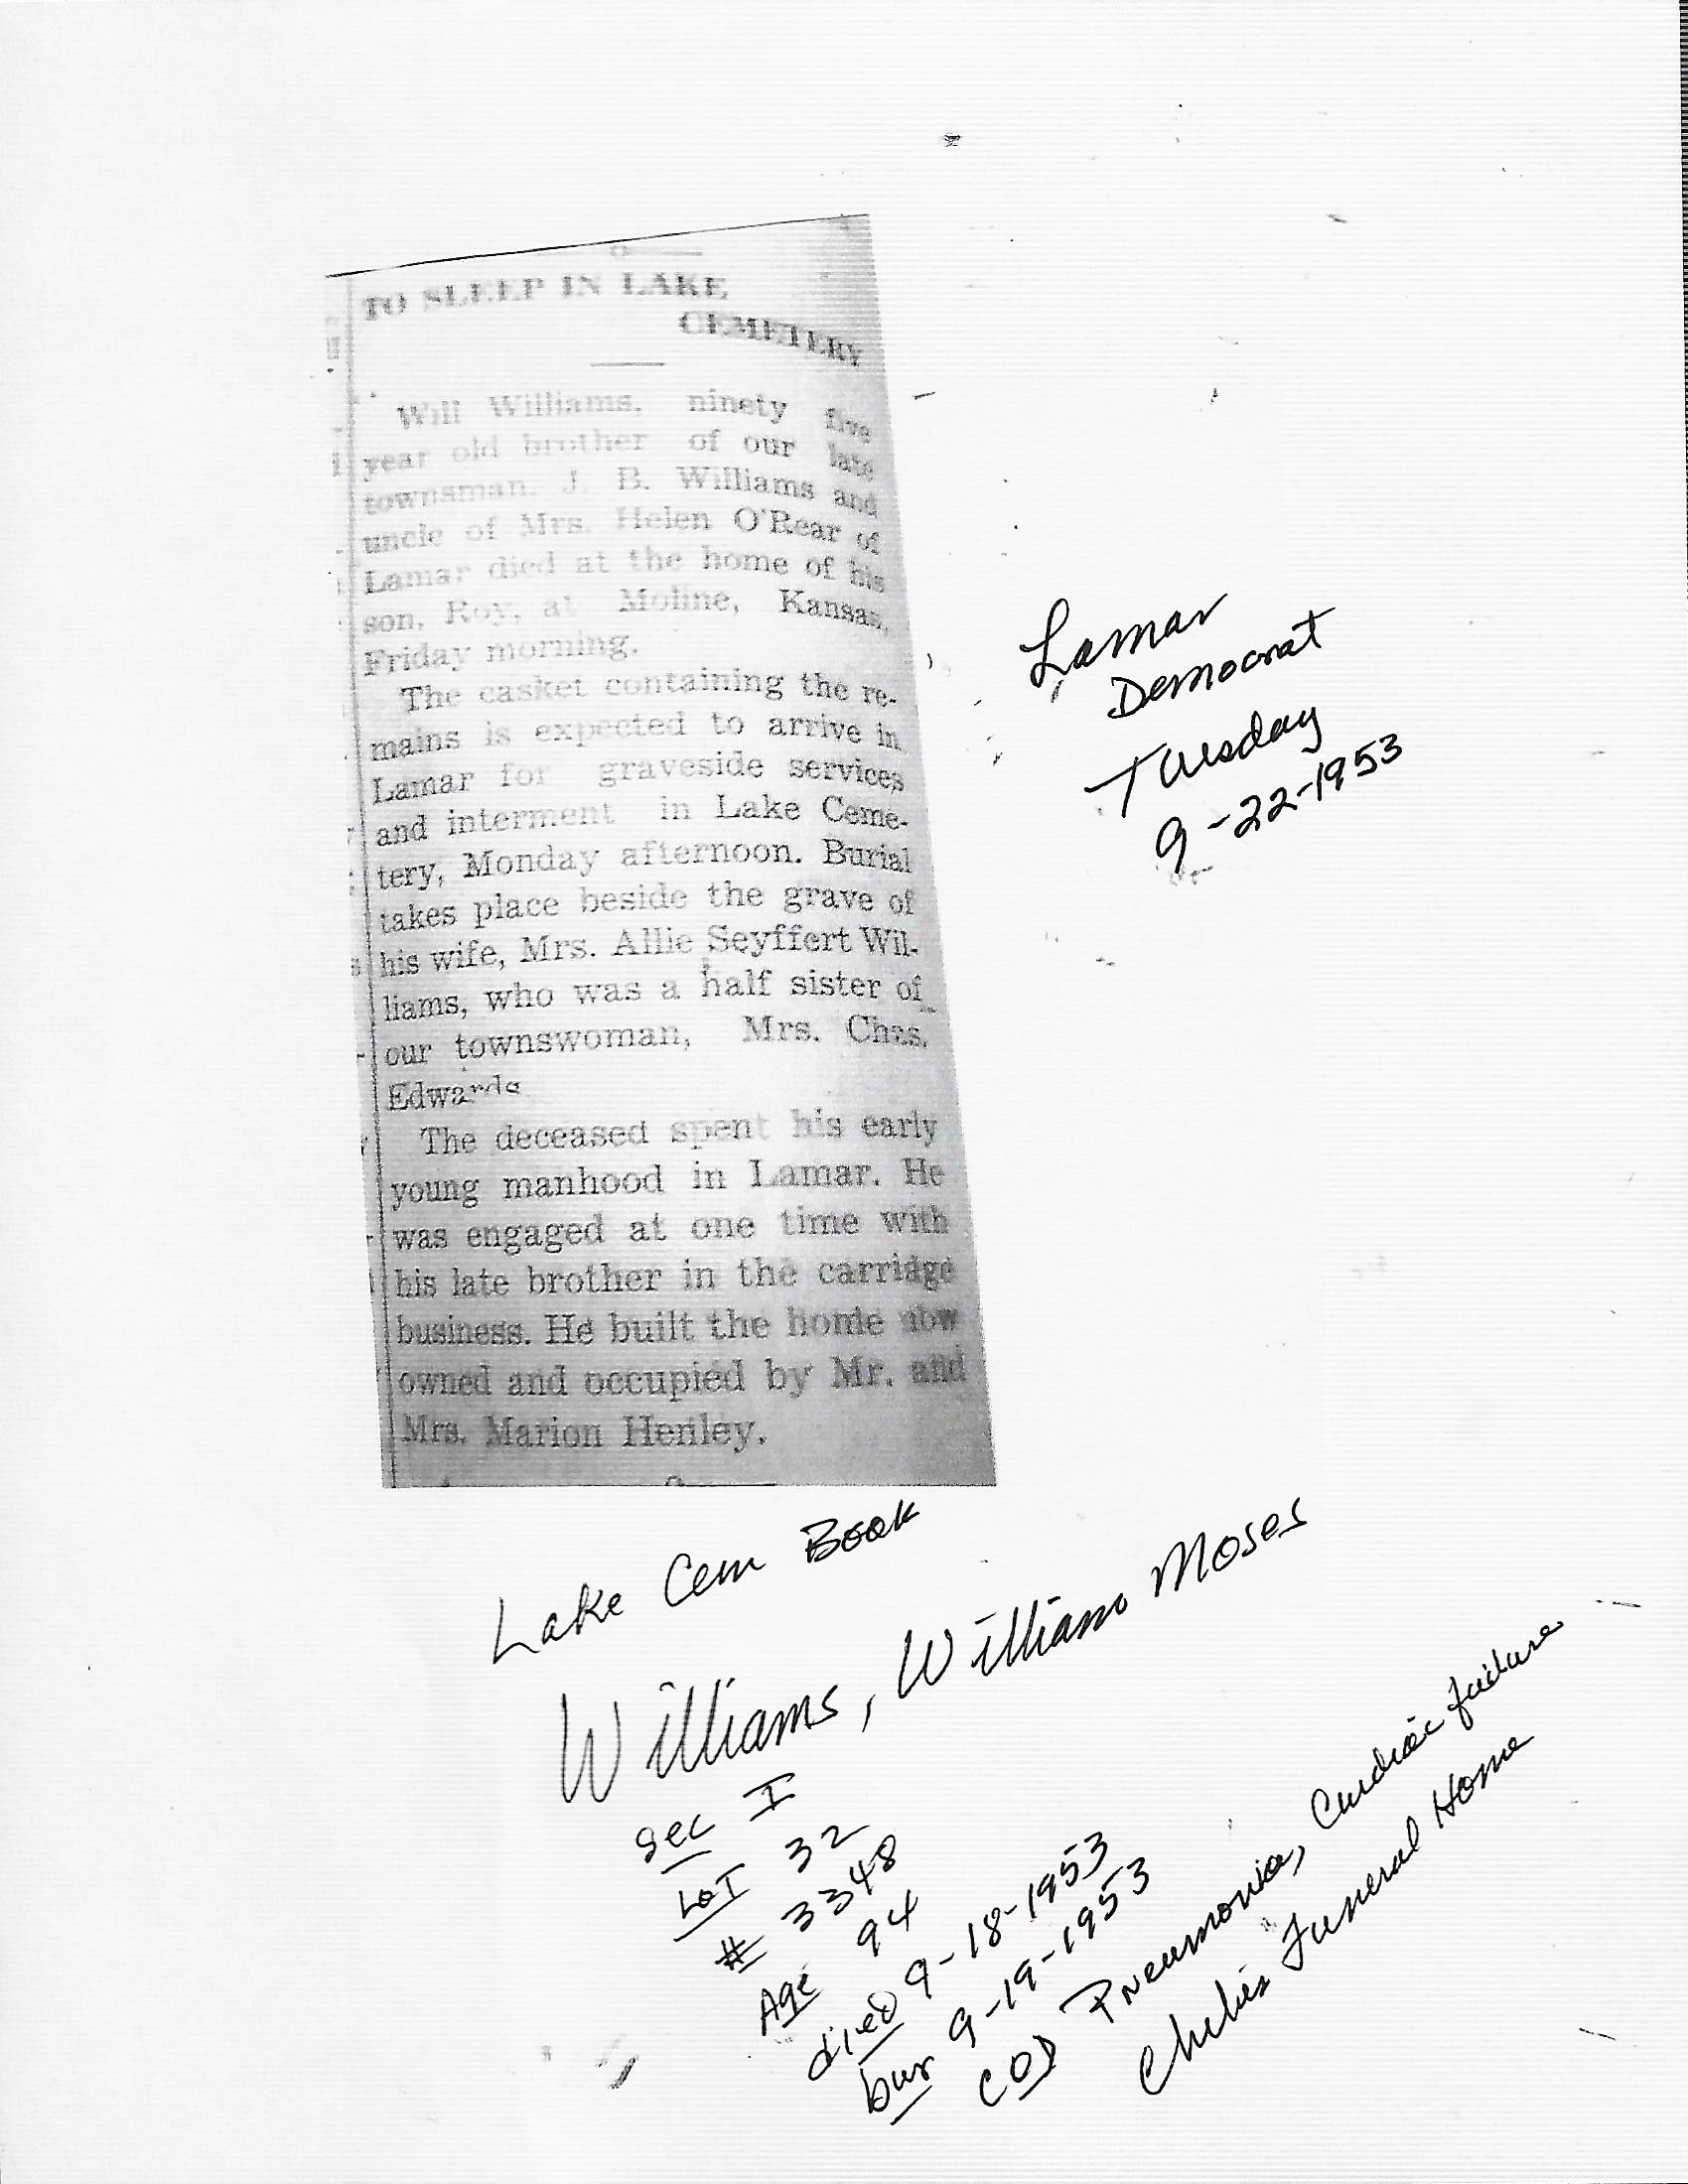 TO SLEEP IN LAKE
CEMETERY
Will Williams, ninety five
year old brother of our late
townsman, J. B. Williams and
uncle of Mrs. Helen O'Rear of
Lamar died at the home of his
son, Roy, at Moline, Kansas,
Friday morning.
The casket containing the re-
mains is expected to arrive in
Lamar for graveside services
and interment in Lake Ceme-
tery, Monday afternoon. Burial
takes place beside the grave of
his wife, Mrs. Allie Seyffert Wil-
liams, who was a half sister of
our townswoman, Mrs. Chas.
Edwards
The deceased spent his early
young manhood in Lamar. He
was engaged at one time with
his late brother in the carriage
business. He built the home now
owned and occupied by Mr. and
Mrs. Marion Henley.
Lamar
Democrat
Tuesday
9-22-1953
Lake Cem Book
Williams, William Moses
Sec I
Lot 32
# 3348
Age 94
died 9-18-1953
bur 9-19-1953
COD Pneumonia, Cardiac failure
Funeral Home